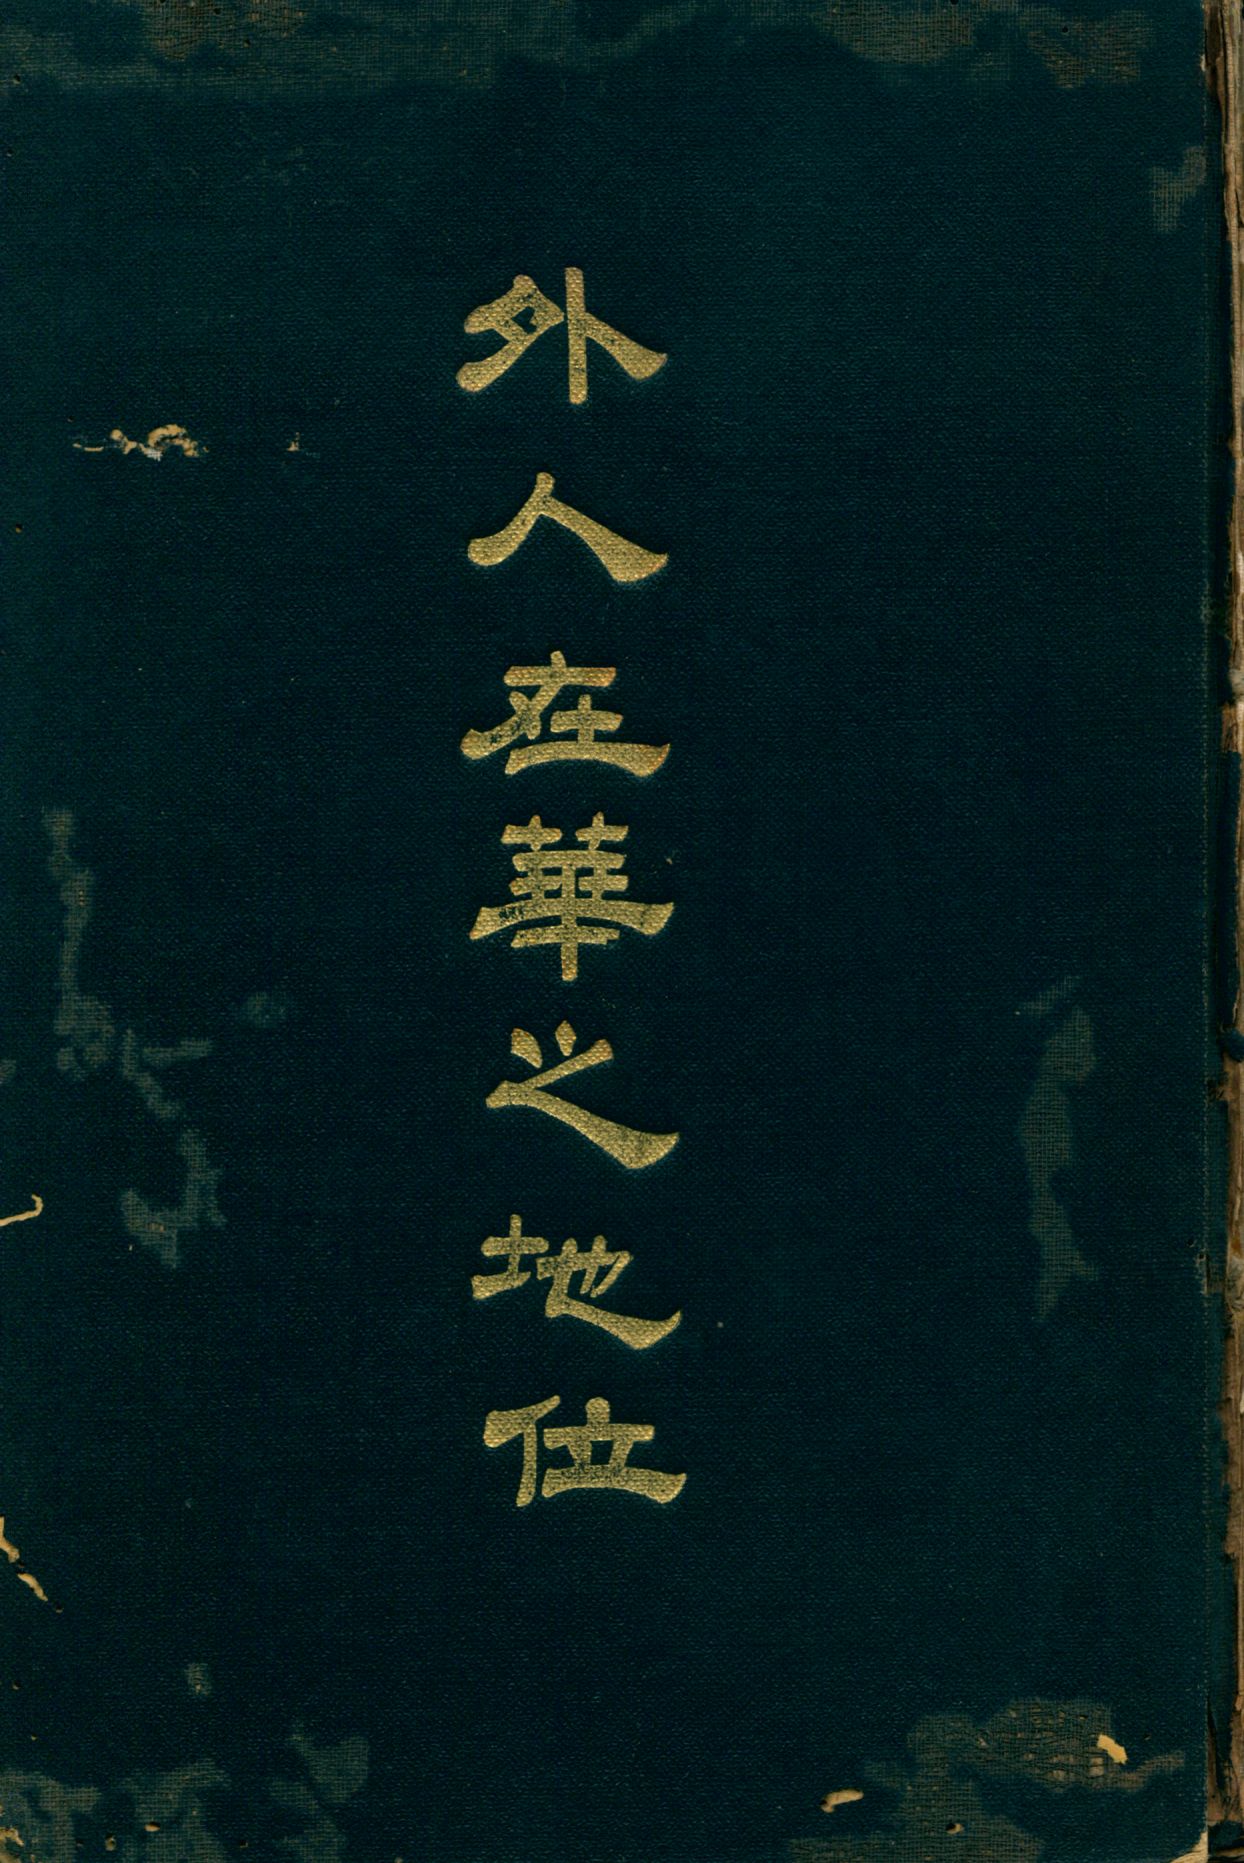 外人在華之地位